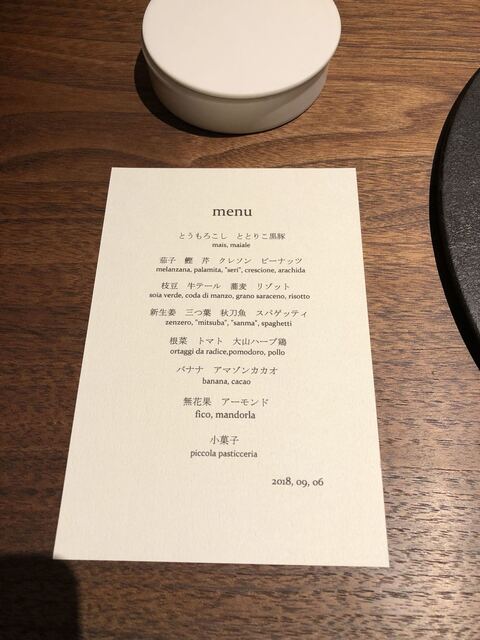 menu
とうもろこし　ととりこ黒豚
mais, maiale
茄子　鰹　芹　クレソン　ピーナッツ
melanzana, palamita, "seri", crescione, arachida
枝豆　牛テール　蕎麦　リゾット
soia verde, coda di manzo, grano saraceno, risotto
新生姜　三つ葉　秋刀魚　スパゲッティ
zenzero, "mitsuba", "sanma", spaghetti
根菜　トマト　大山ハーブ鶏
ortaggi da radice,pomodoro, pollo
バナナ　アマゾンカカオ
banana, cacao
無花果　アーモンド
fico, mandorla
小菓子
piccola pasticceria
2018, 09, 06